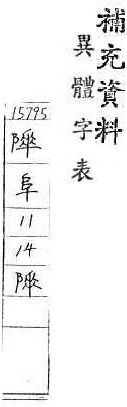 補充資料
異體字表
15795
阜
11
14